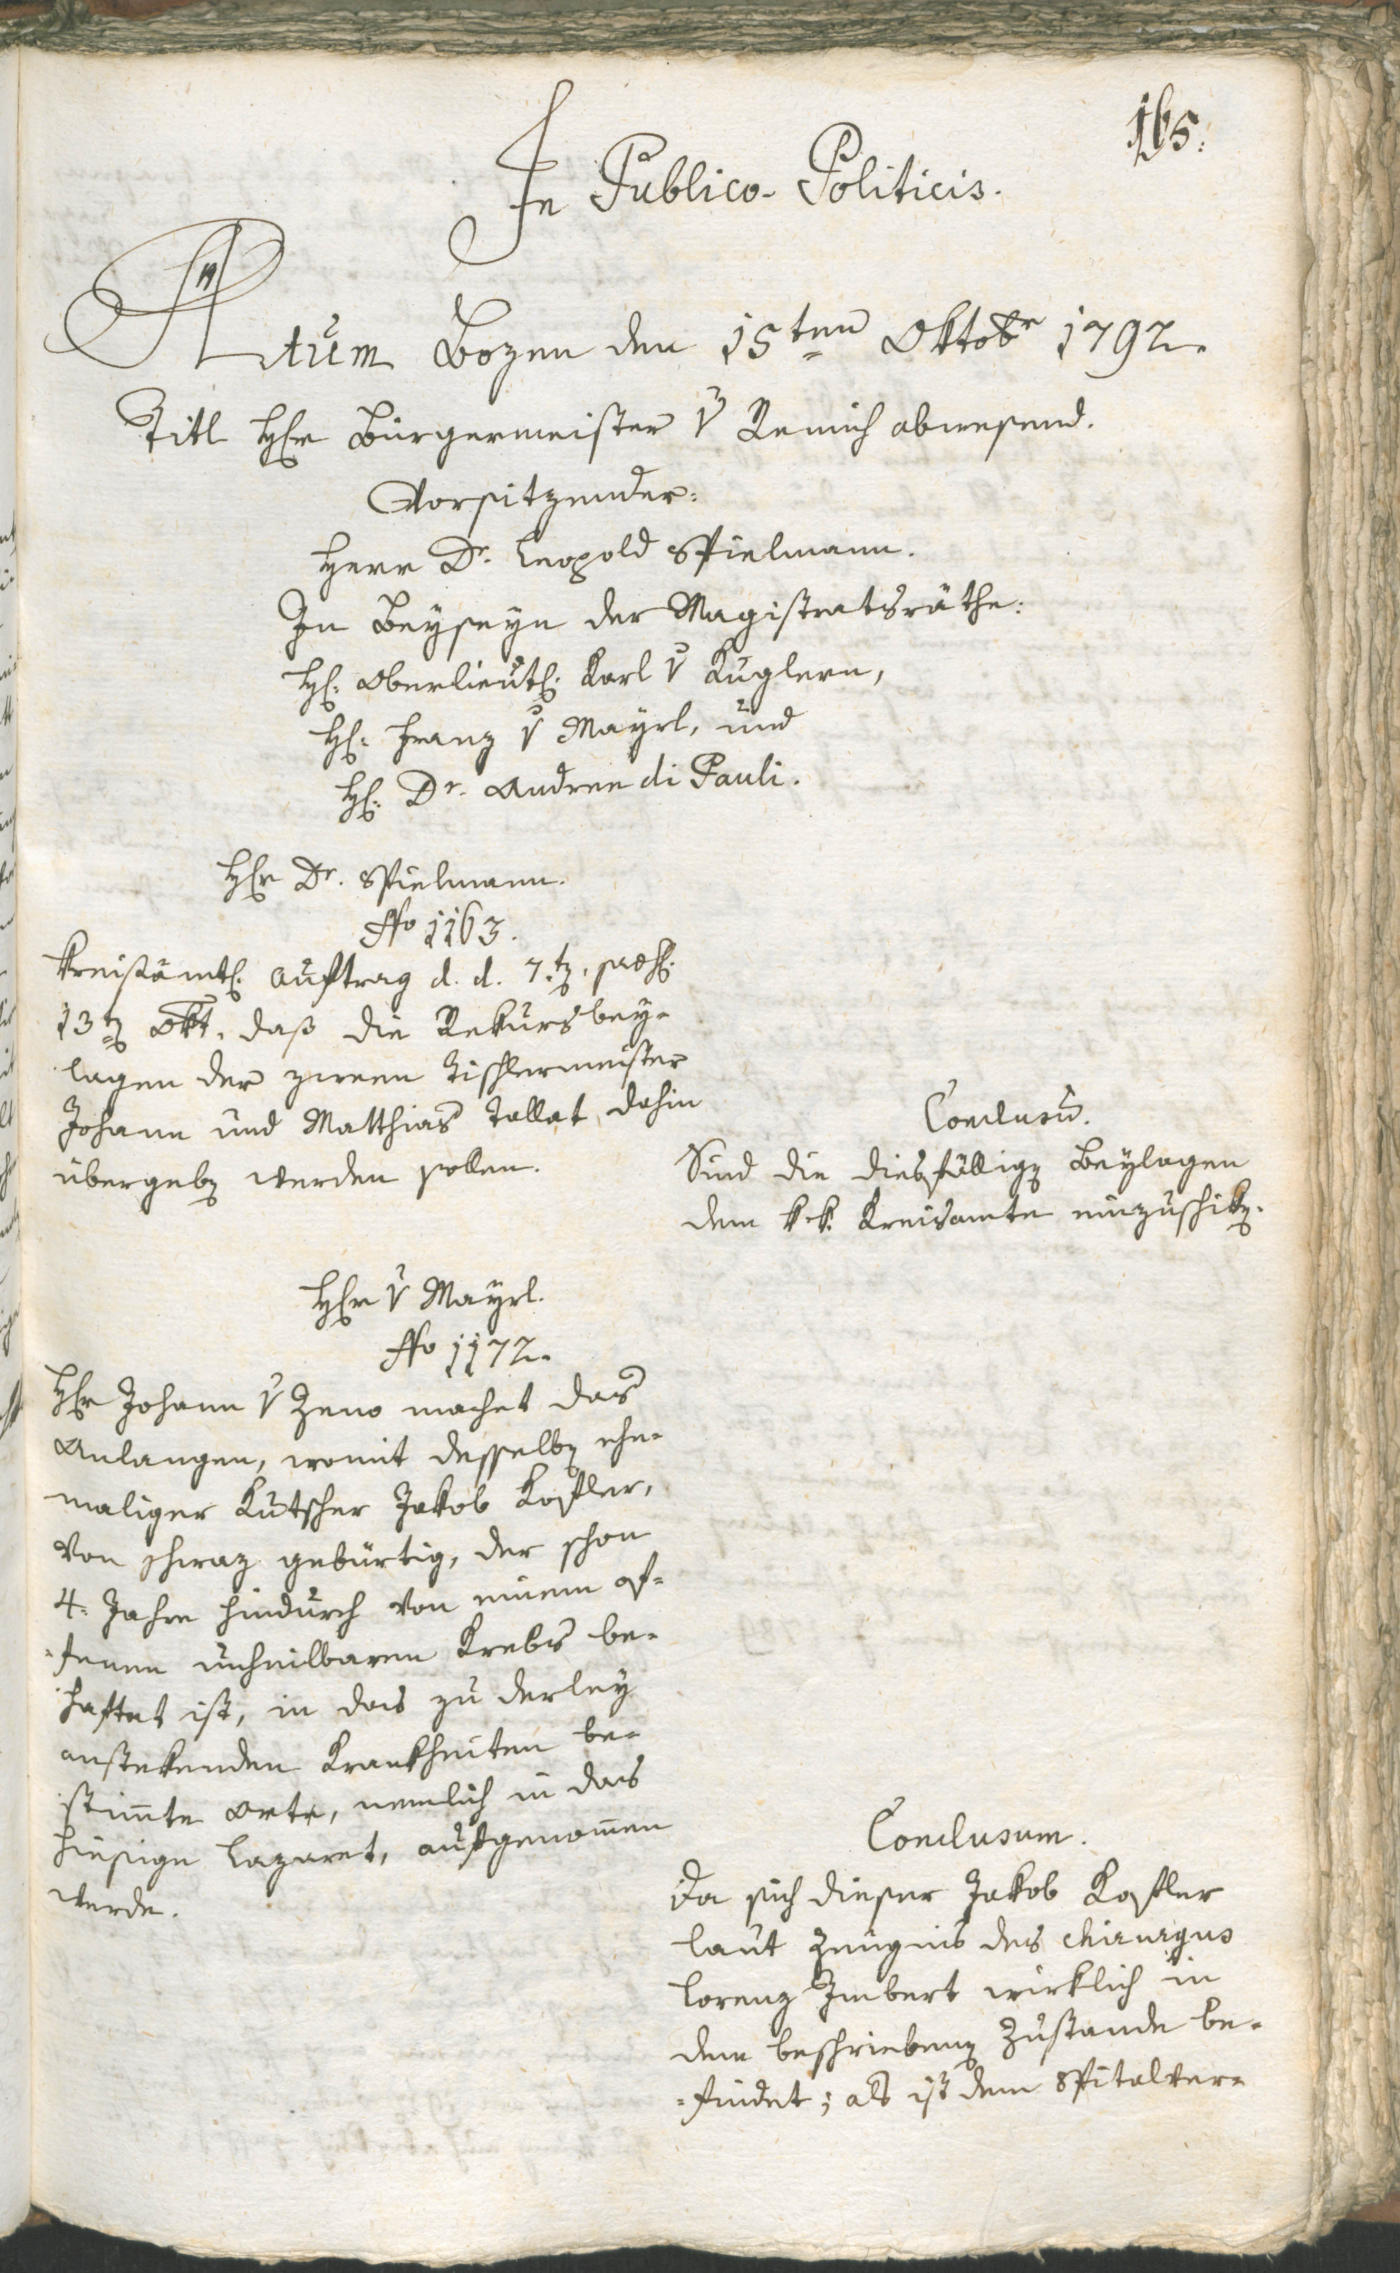 165.
In Publico-Politicis.
Actum Bozen den 15ten Oktobr 1792.
Titl Hhr Bürgermeister v Remich abwesend.
Vorsitzender:
Herr Dr. Leopold Spielmann.
In Beyseyn der Magistratsräthe:
Hh. Oberlieutl. Karl v Kuglern,
Hh. Franz v Mayrl, und
Hh. Dr. Andree di Pauli.
Hhr Dr. Spielmann.
No 1163.
Kreisämtl. Auftrag d. d. 7.t, praes.
13t Okt. daß die Rekursbey-
lagen der zween Tischlermeister
Johann und Matthias Tallat dahin
übergeben werden sollen.
Conclusum.
Sind die diesfällige Beylagen
dem k.k. Kreisamte einzuschiken.
Hhr v Mayrl.
No 1172.
Hhr Johann v Zeno machet das
Anlangen, womit desselben ehe-
maliger Kutscher Jakob Kofler,
von gebürtig, der schon
4. Jahre hindurch von einem of-
fenen unheilbaren Krebs be-
haftet ist, in das zu derley
anstekenden Krankheiten be-
stimmte Orte, nemlich in das
hiesige Lazaret, aufgenommen
werde.
Conclusum.
Da sich dieser Jakob Kofler
laut Zeugnis des chirurgus
Lorenz Imbert wirklich in
dem beschriebenen Zustande be-
findet; als ist dem Spitalver-